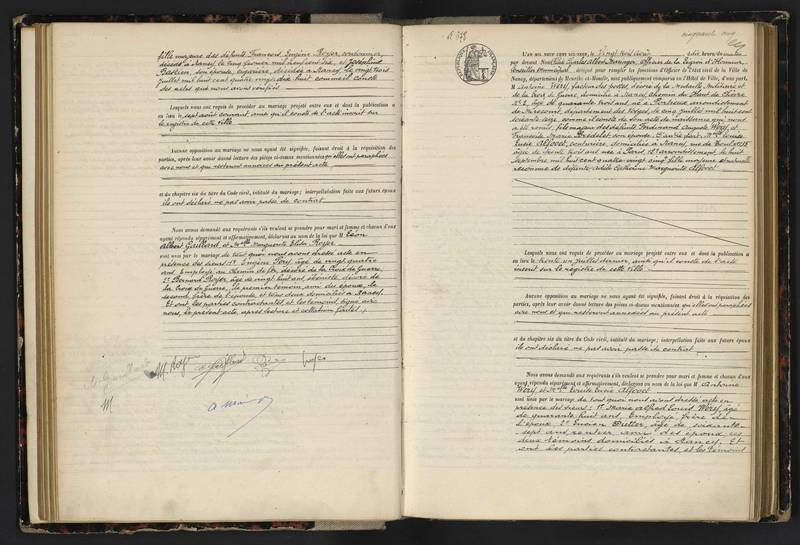 fille majeure des défunts François Eugène Royer, cordonnier,
décédé à Nancy, le cinq février mil neuf cent six, et Joséphine
Bastien, son épouse, décédée à Nancy, le vingt trois
juillet mil huit cent quatre vingt dix huit comme il conste
des actes que nous avons vérifiés
Lesquels nous ont requis de procéder au mariage projeté entre eux et dont la publication a
eu lieu le sept août courant ainsi qu'il conste de l'acte inscrit sur
le registre de cette ville
Aucune opposition au mariage ne nous ayant été signifiée, faisant droit à la réquisition des
parties, après leur avoir donné lecture des pièces ci-dessus mentionnées qu'elles ont paraphées
avec nous et qui resteront annexées au présent acte
et du chapitre six du titre du Code civil, intitulé du mariage; interpellation faite aux futurs époux
ils ont déclaré ne pas avoir passé de contrat
Nous avons demandé aux requérants s'ils veulent se prendre pour mari et femme et chacun d'eux
ayant répondu séparément et affirmativement, déclarons au nom de la loi que M. Léon
Albert Gaillard et Mlle Marguerite Elisa Royer
sont unis par le mariage de tout quoi nous avons dressé acte en
présence des sieurs: 1° Eugène âgé de vingt quatre
ans, Employé au chemin de fer, décoré de la Croix de Guerre,
2° Bernard Royer âgé de vingt huit ans, ébéniste, décoré de
la Croix de Guerre, le premier témoin, ami des époux, le
second, frère de l'épouse et tous deux domiciliés à Nancy.
Et ont les parties contractantes, et les témoins, signé avec
nous, le présent acte, après lecture et collation faites.
M. Royer
B. 378
cinquante neuf
L'an mil neuf cent dix-neuf, le Vingt trois août à dix heures du matin
par devant Nous Officier de la Légion d'Honneur,
Conseiller Municipal délégué pour remplir les fonctions d'Officier de l'état civil de la Ville de
Nancy, département de Meurthe-et-Moselle, sont publiquement comparus en l'Hôtel de Ville, d'une part,
M. Antoine Wéry, facteur des postes, décoré de la Médaille Militaire et
de la Croix de Guerre, domicilié à Nancy, chemin du Haut de Chèvre
N° 2, âgé de quarante trois ans, né à arrondissement
de Mirecourt, département des Vosges, le cinq juillet mil huit cent
soixante seize comme il conste de son acte de naissance qui nous
a été remis, fils majeur des défunts Ferdinand Auguste Wéry et
Françoise Marie son épouse. D'autre part: Mlle Louise
Lucie Alfovet, couturière, domiciliée à Nancy, rue de
âgée de trente trois ans, née à Paris, 12e arrondissement le huit
septembre mil huit cent quatre vingt cinq fille majeure et naturelle
reconnue de défunte Adèle Catherine Marguerite Alfovet
Lesquels nous ont requis de procéder au mariage projeté entre eux et dont la publication a
eu lieu le trente un juillet dernier, ainsi qu'il conste de l'acte
inscrit sur le registre de cette ville
Aucune opposition au mariage ne nous ayant été signifiée, faisant droit à la réquisition des
parties, après leur avoir donné lecture des pièces ci-dessus mentionnées qu'elles ont paraphées
avec nous et qui resteront annexées au présent acte
et du chapitre six du titre du Code civil, intitulé du mariage; interpellation faite aux futurs époux
ils ont déclaré ne pas avoir passé de contrat
Nous avons demandé aux requérants s'ils veulent se prendre pour mari et femme et chacun d'eux
ayant répondu séparément et affirmativement, déclarons au nom de la loi que M. Antoine
Wéry et Mlle Louise Lucie Alfovet
sont unis par le mariage de tout quoi nous avons dressé acte en
présence des sieurs: 1° Marie Alfred Louis Wéry, âgé
de quarante huit ans, Employé, frère de
l'époux 2° Lucien âgé de soixante-
sept ans, rentier, ami des époux, ces
deux témoins domiciliés à Nancy. Et
ont les parties contractantes, et les témoins